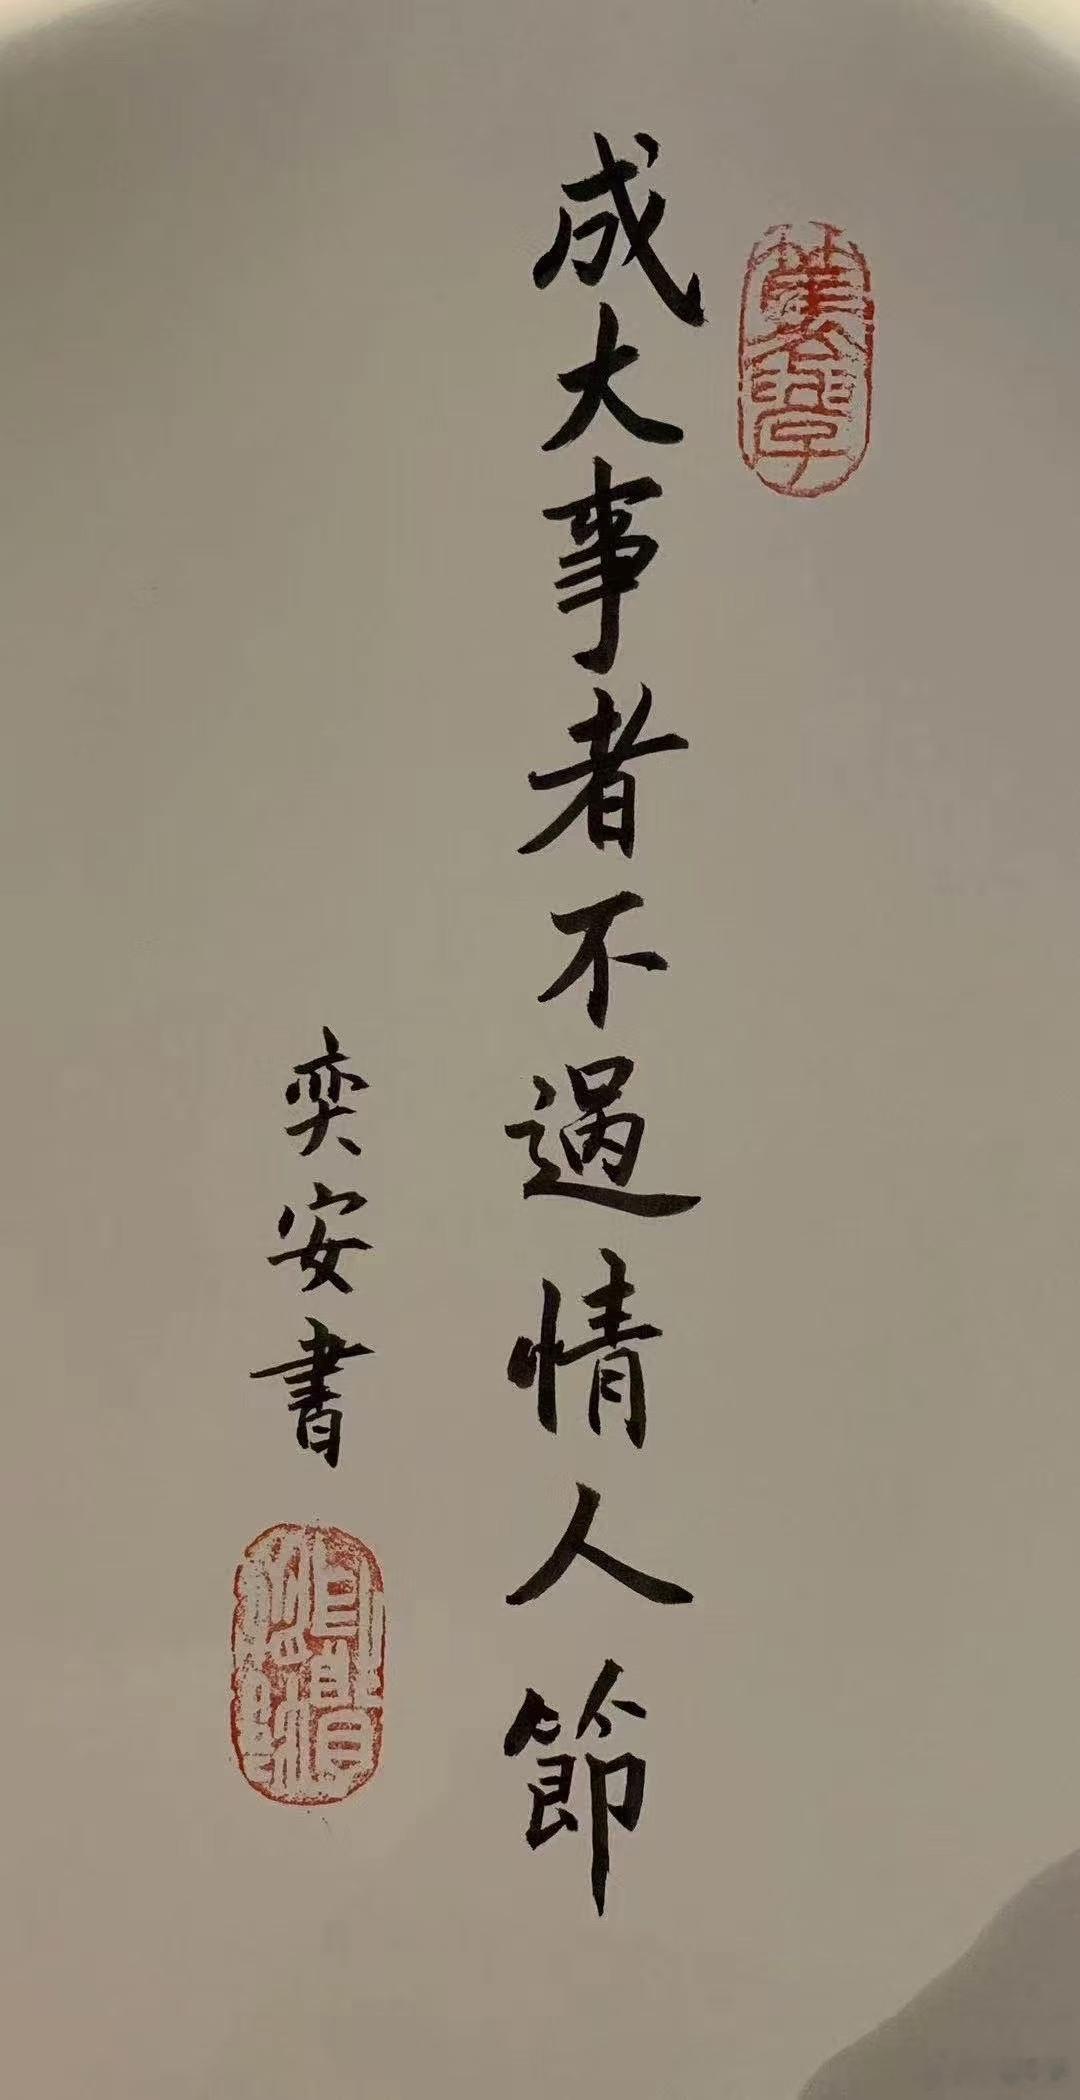 成大事者不過情人節
奕安書